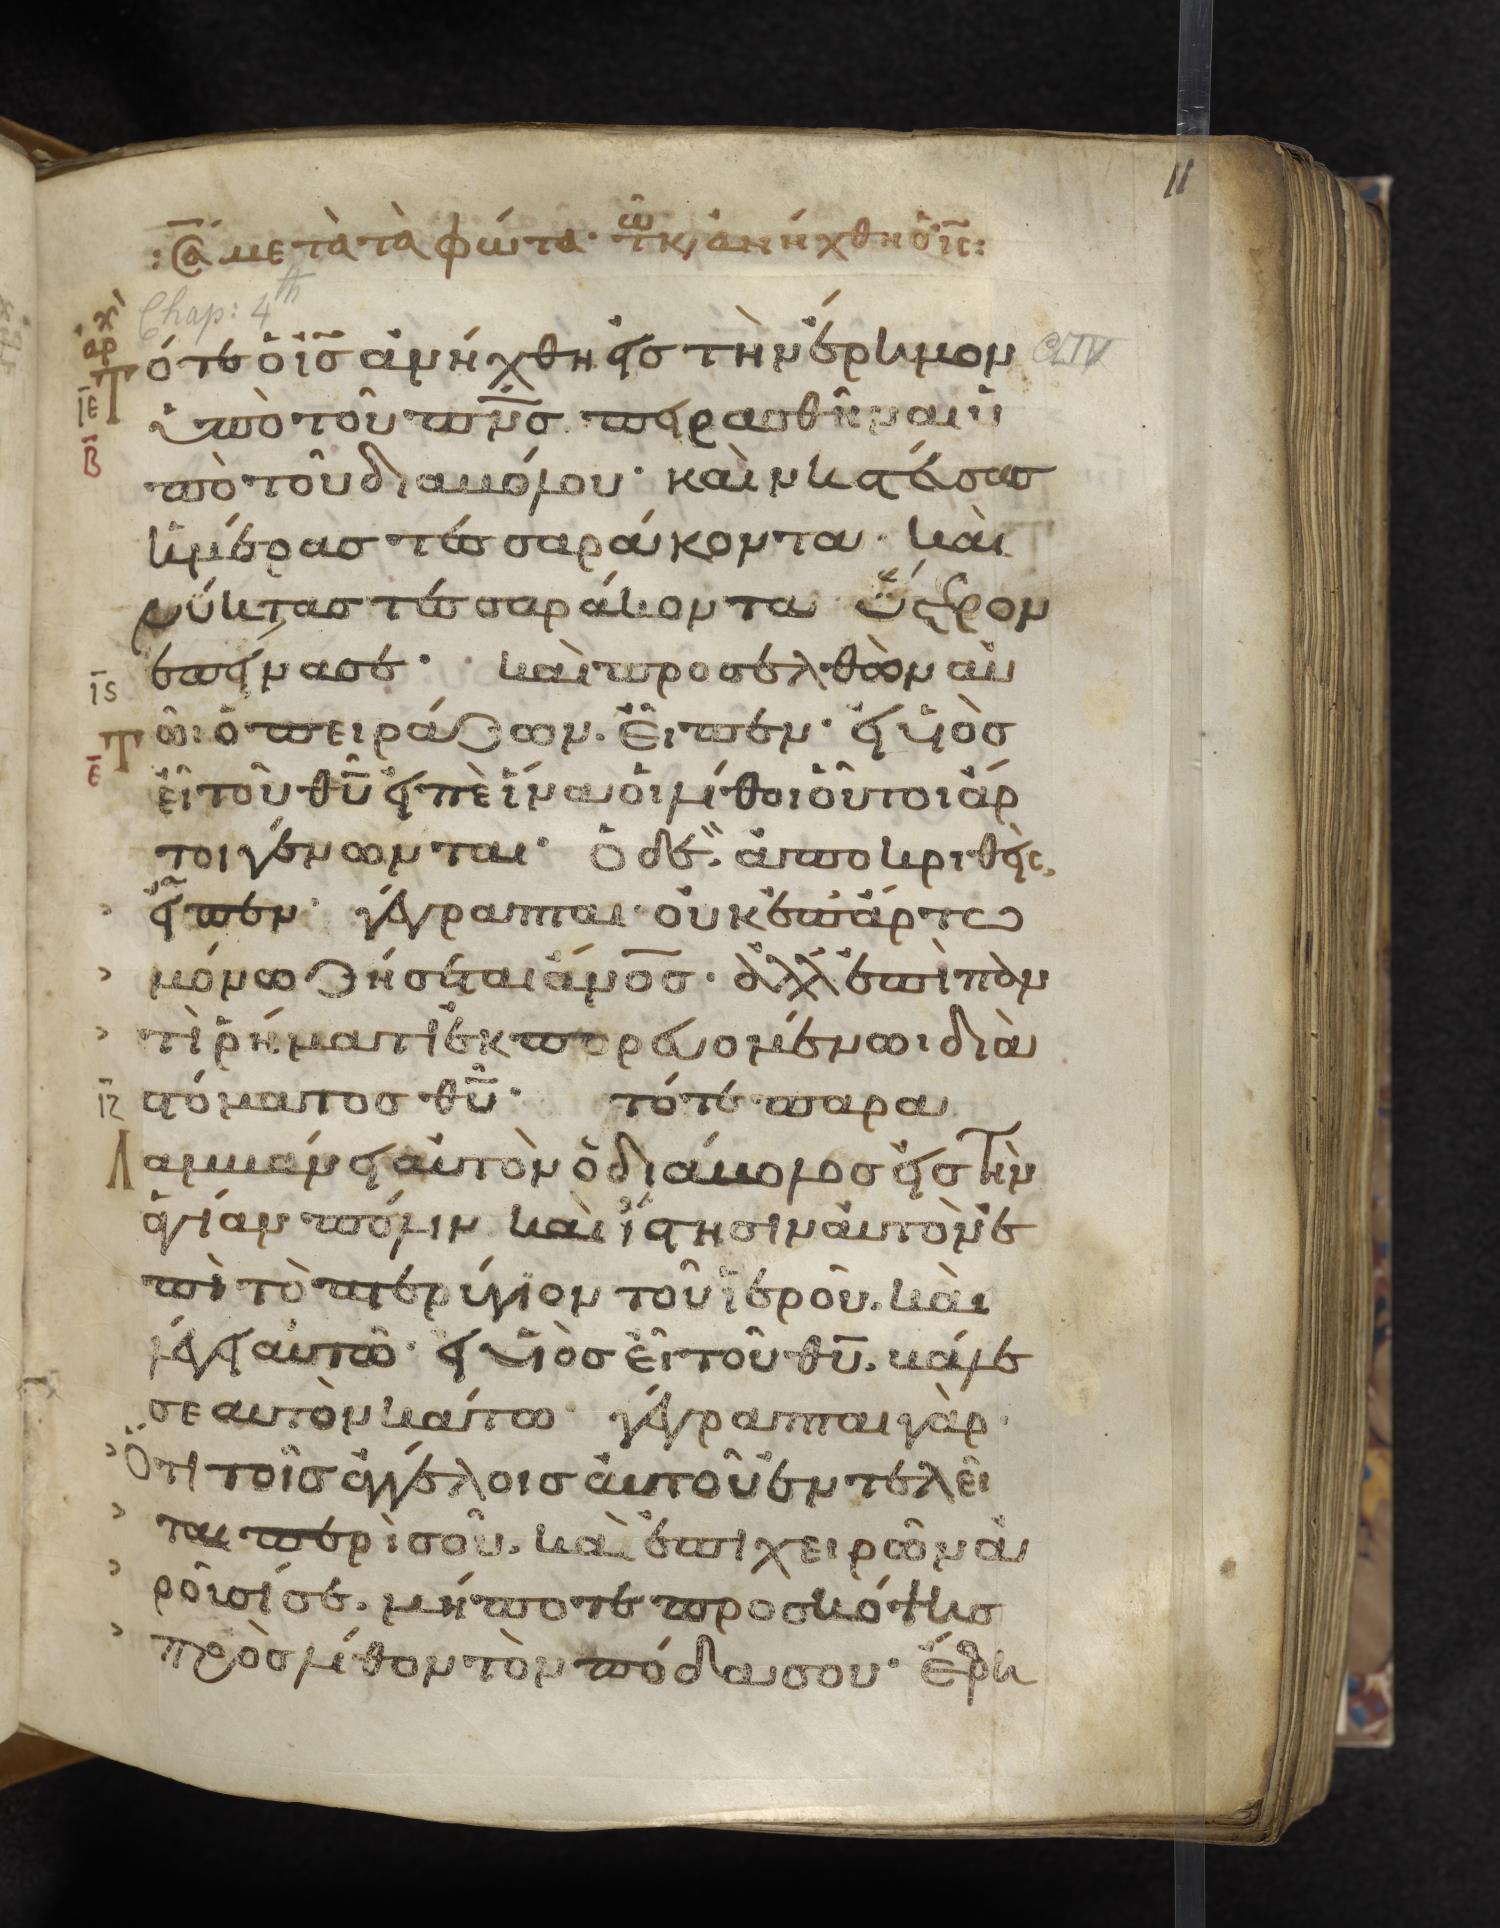 11
: Σᾱ μετὰ τὰ φώτα· τῶ κ, ἀνήχθη ὁ ῑς̄ :
Chap: 4th
ἀρχ
Τότε ὁ ῑς̄ ἀνήχθη εἰς τὴν ἔρημον CLIV
ῑε̄ ὑπὸ τοῦ π̄ν̄ς̄ πειρασθῆναι ὑ
β̄ πὸ τοῦ διαβόλου· καὶ νηστεύσας
ἡμέρας τεσσαράκοντα· καὶ
νύκτας τεσσαράκοντα ὕστερον
ῑς̄ ἐπείνασε· καὶ προσελθὼν αὐ
Τῶι ὁ πειράζων. εἶπεν· εἰ υἱὸς
ε̄ εἶ τοῦ θ̄ῡ εἰπὲ ἵνα οἱ λίθοι οὗτοι ἄρ
τοι γένωνται· ὁ δὲ. ἀποκριθεὶς
εἶπεν· γέγραπται· οὐκ ἐπ᾽ ἄρτω
μόνω ζήσεται ἄν̄ο̄ς̄· ἀλλ᾽ ἐπὶ παν
τὶ ῥήματι ἐκπορευομένωι διὰ
ῑζ̄ στόματος θ̄ῡ· τότε παρα
Λαμβάνει αὐτὸν ὁ διάβολος εἰς τὴν
ἁγίαν πόλιν καὶ ἵστησιν αὐτὸν ἐ
πὶ τὸ πτερύγιον τοῦ ἱεροῦ. καὶ
λέγει αὐτῶ· εἰ υἱὸς εἶ τοῦ θ̄ῡ. βάλε
σεαυτὸν κάτω· γέγραπται γὰρ·
Ὅτι τοῖς ἀγγέλοις αὐτοῦ ἐντελεῖ
ται περὶ σοῦ. καὶ ἐπὶ χειρῶν ἀ
ροῦσί σε. μήποτε προσκόψης
πρὸς λίθον τὸν πόδα σου· ἔφη